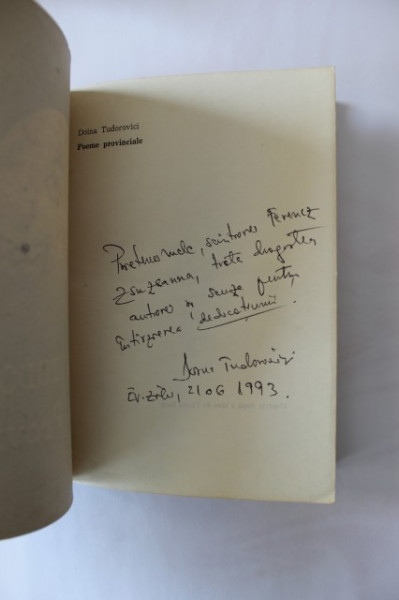 Doina Tudorovici
Poeme provinciale
Prietenei mele, scriitoarea Ferencz
Zsuzsanna, toată dragostea
autoarei și scuze pentru
întîrzierea dedicațiunii.
Doina Tudorovici
21 06 1993.